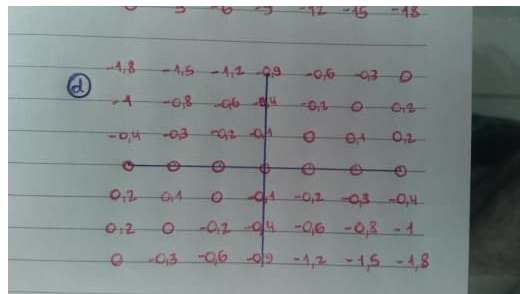 0 -3 -6 -9 -12 -15 -18
-1,8 -1,5 -1,2 -0,9 -0,6 -0,3 0
d
-1 -0,8 -0,6 -0,4 -0,2 0 0,2
-0,4 -0,3 -0,2 -0,1 0 0,1 0,2
0 0 0 0 0 0 0
0,2 0,1 0 -0,1 -0,2 -0,3 -0,4
0,2 0 -0,2 -0,4 -0,6 -0,8 -1
0 -0,3 -0,6 -0,9 -1,2 -1,5 -1,8